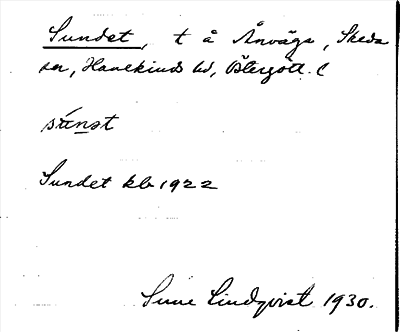 Sundet, t å Ånväga, Skeda
sn, Hanekinds hd, Östergötl. (
súnət
Sundet kb 1922
Sune Lindqvist 1930.